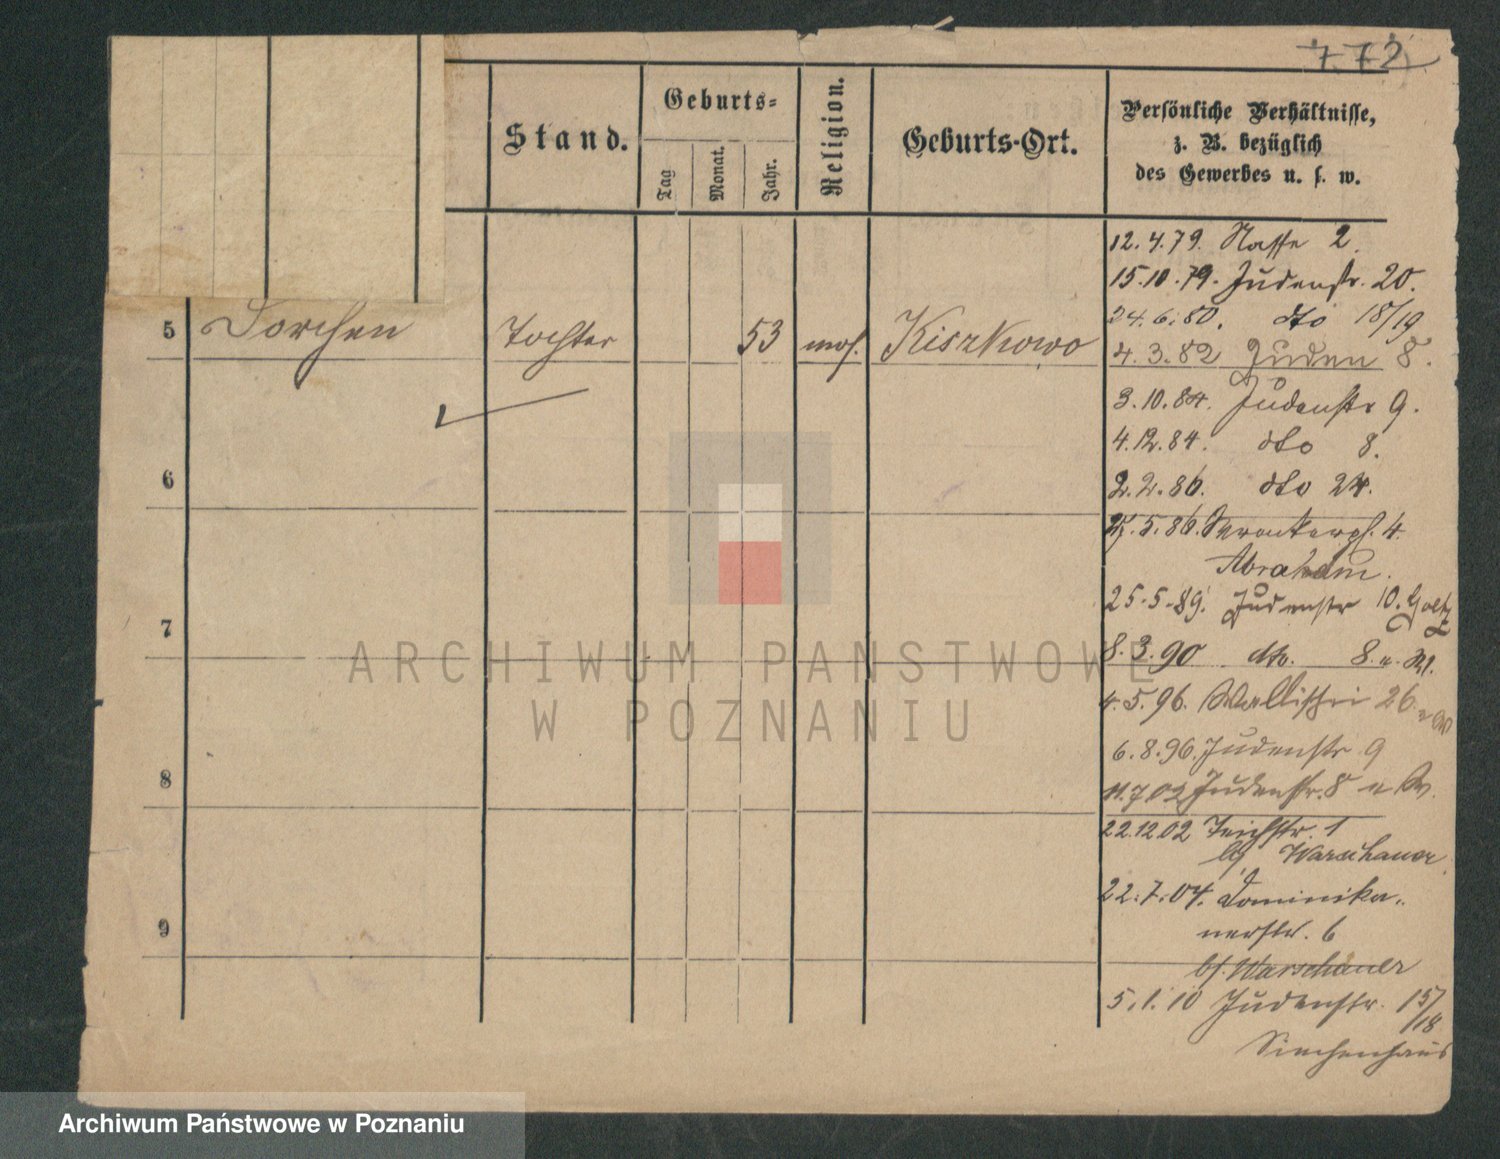 772
Stand.
Geburts-
Tag
Monat.
Jahr.
Religion.
Geburts-Ort.
Persönliche Verhältnisse,
z. B. bezüglich
des Gewerbes u. s. w.
12.4.79. Nasse 2.
15.10.79. Judenstr. 20.
24.6.80. dto 18/19
5 Dorchen Tochter 53 mos. Kiszkowo
4.3.82 Juden 8.
3.10.84. Judenstr 9.
4.12.84. dto 8.
2.2.86. dto 24.
6
5.86. 4.
Abraham.
25.5.89. Judenstr 10.
7
8.3.90 dto. 8.
4.5.96. Wallischei 26
6.8.96. Judenstr 9
8
11.7.02 Judenstr. 8
22.12.02 Teichstr. 1
Warschauer
22.7.04. Dominika-
nerstr. 6
9
bf. Warschauer
5.1.10 Judenstr. 15/
/18
Siechenhaus
ARCHIWUM PAŃSTWOWE
W POZNANIU
Archiwum Państwowe w Poznaniu